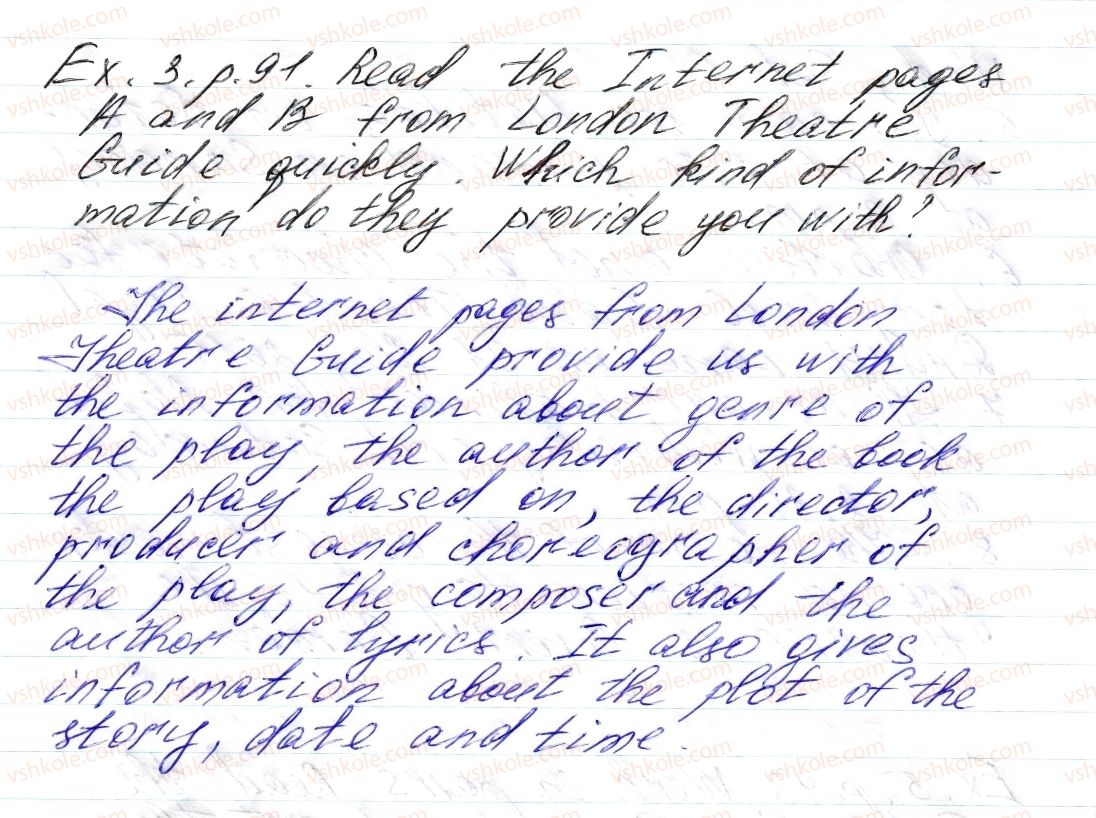 Ex. 3. p. 91. Read the Internet pages
A and B from London Theatre
Guide quickly. Which kind of infor-
mation do they provide you with?
The internet pages from London
Theatre Guide provide us with
the information about genre of
the play, the author of the book
the play based on, the director,
producer and choreographer of
the play, the composer and the
author of lyrics. It also gives
information about the plot of the
story, date and time.